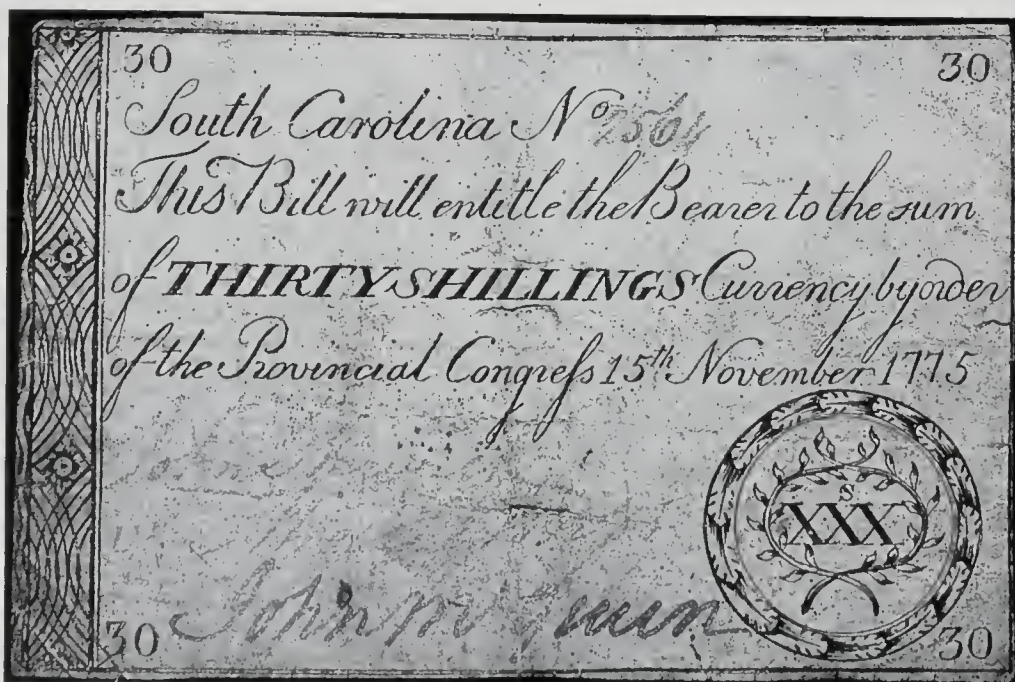 30 30
South Carolina No 2561
This Bill will entitle the Bearer to the sum
of THIRTY SHILLINGS Currency by order
of the Provincial Congreſs 15th November 1775
S
XXX
John
30 30